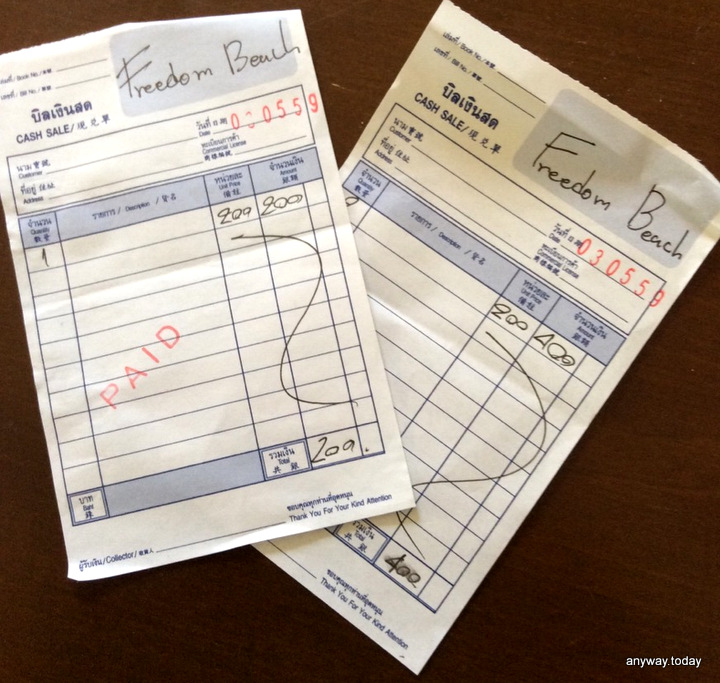 เล่มที่ / Book No. /
เลขที่ / Bill No. /
Freedom Beach
บิลเงินสด
CASH SALE / 現兌單
วันที่
Date
030559
ทะเบียนการค้า
Commercial License
商標執號
นาม 寶號
Customer
ที่อยู่ 住址
Address
จำนวน
Quantity
數量
รายการ / Description / 貨名
หน่วยละ
Unit Price
價銀
จำนวนเงิน
Amount
銀額
1
200 200
PAID
บาท
Baht
銖
รวมเงิน
Total
共銀
200.
ขอบคุณทุกท่านที่อุดหนุน
Thank You For Your Kind Attention
ผู้รับเงิน/Collector/收銀人
เล่มที่ / Book No. /
เลขที่ / Bill No. /
Freedom Beach
บิลเงินสด
CASH SALE / 現兌單
วันที่
Date
030559
ทะเบียนการค้า
Commercial License
商標執號
นาม 寶號
Customer
ที่อยู่ 住址
Address
จำนวน
Quantity
數量
รายการ / Description / 貨名
หน่วยละ
Unit Price
價銀
จำนวนเงิน
Amount
銀額
200 400
รวมเงิน
Total
共銀
400
ขอบคุณทุกท่านที่อุดหนุน
Thank You For Your Kind Attention
anyway.today